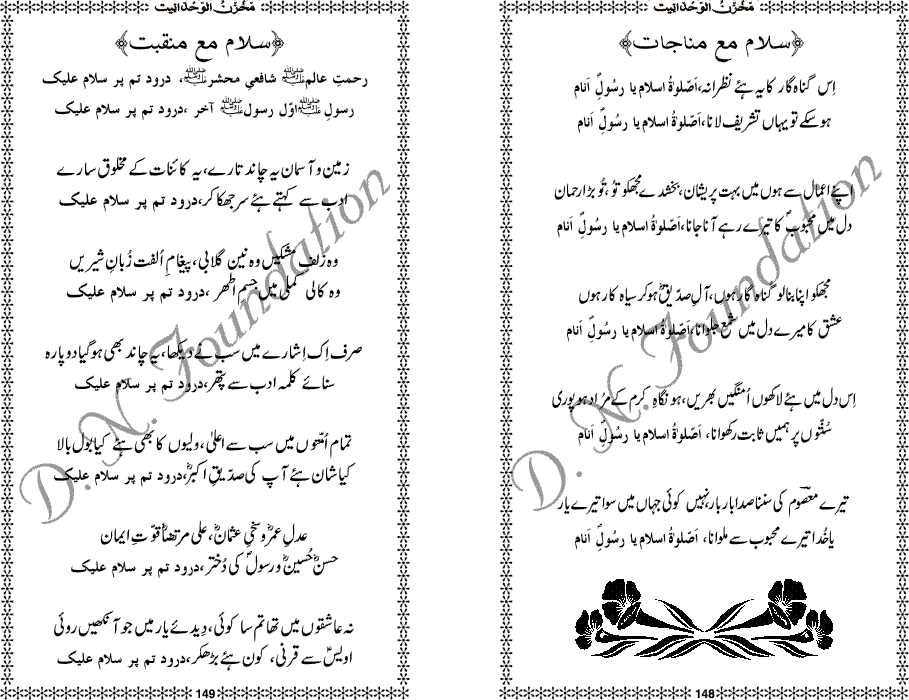 مَخْزَنُ الوَحْدَانِیت
﴿سلام مع مناجات﴾
اِس گناہ گار کا یہ ہئے نظرانہ، اَصّلوۃُ اسلام یا رسُولِؐ اَنام
ہو سکے تو یہاں تشریف لانا، اَصّلوۃُ اسلام یا رسُولِؐ اَنام
اپنے اعمال سے ہوں میں بہت پریشان، بخشدے مجھکو تُو، تُو بڑا رحمان
دل میں محبوبؐ کا تیرے رہے آنا جانا، اَصّلوۃُ اسلام یا رسُولِؐ اَنام
مجھکو اپنا بنالو گناہ گار ہوں، آلِ صدّیقؓ ہو کر سیاہ کار ہوں
عشق کا میرے دل میں شمع جلوانا، اَصّلوۃُ اسلام یا رسُولِؐ اَنام
اِس دل میں ہئے لاکھوں اُمنگیں بھریں، ہو نگاہِ کرم کے مُراد ہو پوری
سُنّتوں پر ہمیں ثابت رکھوانا، اَصّلوۃُ اسلام یا رسُولِؐ اَنام
تیرے معصومؔ کی سننا صدا بار بار نہیں کوئی جہاں میں سوا تیرے یار
یا خُدا تیرے محبوب سے ملوانا، اَصّلوۃُ اسلام یا رسُولِؐ اَنام
148
مَخْزَنُ الوَحْدَانِیت
﴿سلام مع منقبت﴾
رحمتِ عالمﷺ شافعیِ محشرﷺ، درود تم پر سلام علیک
رسولِ اوّل رسولﷺ آخر، درود تم پر سلام علیک
زمین و آسمان یہ چاند تارے، یہ کائنات کے مخلوق سارے
ادب سے کہتے ہئے سر جھکا کر، درود تم پر سلام علیک
وہ زُلفِ مشکیں وہ نین گلابی، پیغامِ اُلفت زُبانِ شیریں
وہ کالی کملی میں جسمِ اطہر، درود تم پر سلام علیک
صرف اِک اِشارے میں سب نے دیکھا، یہ چاند بھی ہو گیا دو پارہ
سنائے کلمہ ادب سے پتھر، درود تم پر سلام علیک
تمام اُمتّوں میں سب سے اعلیٰ، ولیوں کا بھی ہئے کیا بُول بالا
کیا شان ہئے آپ کی صدّیقِ اکبرؓ، درود تم پر سلام علیک
عدلِ عمرؓ و سخیِ عثمانؓ، علی مرتضاؓ قوّتِ ایمان
حسنؓ حُسینؓ و رسولؐ کی دُختر، درود تم پر سلام علیک
نہ عاشقوں میں تھا تم سا کوئی، دِیدئے یار میں جو آنکھیں روئی
اویسؓ سے قرنی، کون ہئے بڑھکر، درود تم پر سلام علیک
149
D. N. Foundation
D. N. Foundation